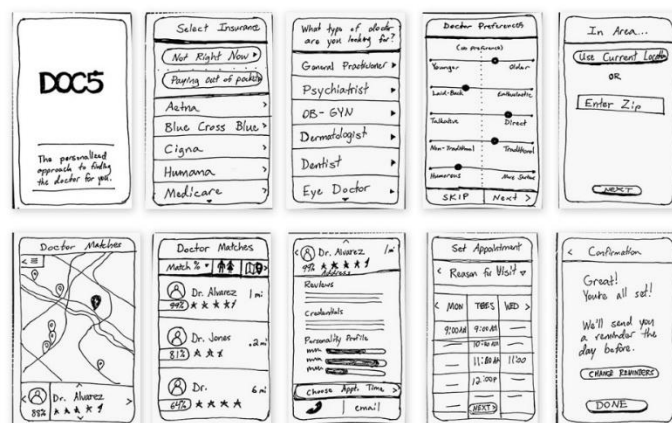 DOC5
The personalized
approach to finding
the doctor for you.
Select Insurance
Not Right Now
Paying out of pocket
Aetna
Blue Cross Blue
Cigna
Humana
Medicare
What type of doctor
are you looking for?
General Practitioner
Psychiatrist
OB-GYN
Dermatologist
Dentist
Eye Doctor
Doctor Preferences
Younger Older
Laid-Back Enthusiastic
Talkative Direct
Non-Traditional Traditional
Humorous More Serious
SKIP Next >
In Area...
Use Current Location
OR
Enter Zip
NEXT
Doctor Matches
Dr. Alvarez
88%
Doctor Matches
Match %
Dr. Alvarez 1 mi
99%
Dr. Jones .2 mi
81%
Dr. 6 mi
64%
Dr. Alvarez 1 mi
99%
Address
Reviews
Credentials
Personality Profile
Choose Appt. Time >
email
Set Appointment
Reason for Visit
< MON TUES WED >
9:00AM 9:00AM
10:30AM
11:00AM 11:00
12:00P
NEXT>
< Confirmation
Great!
You're all set!
We'll send you
a reminder the
day before.
CHANGE REMINDERS
DONE